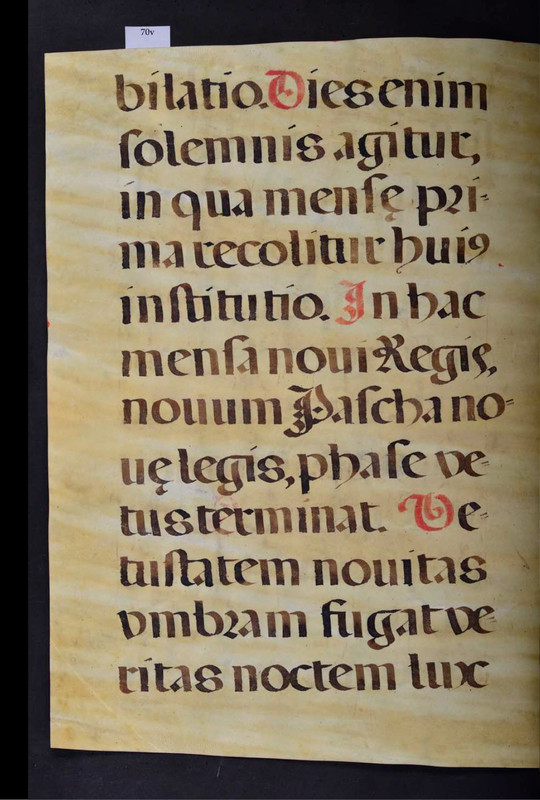 70v
bilatio. Dies enim
ſolemnis agitur,
in qua menſę pri-
ma recolitur huiꝰ
inſtitutio. In hac
menſa noui Regis,
nouum Paſcha no-
uę legis, phaſe ve-
tus terminat. Ve-
tuſtatem nouitas
vmbram fugat ve-
ritas noctem lux